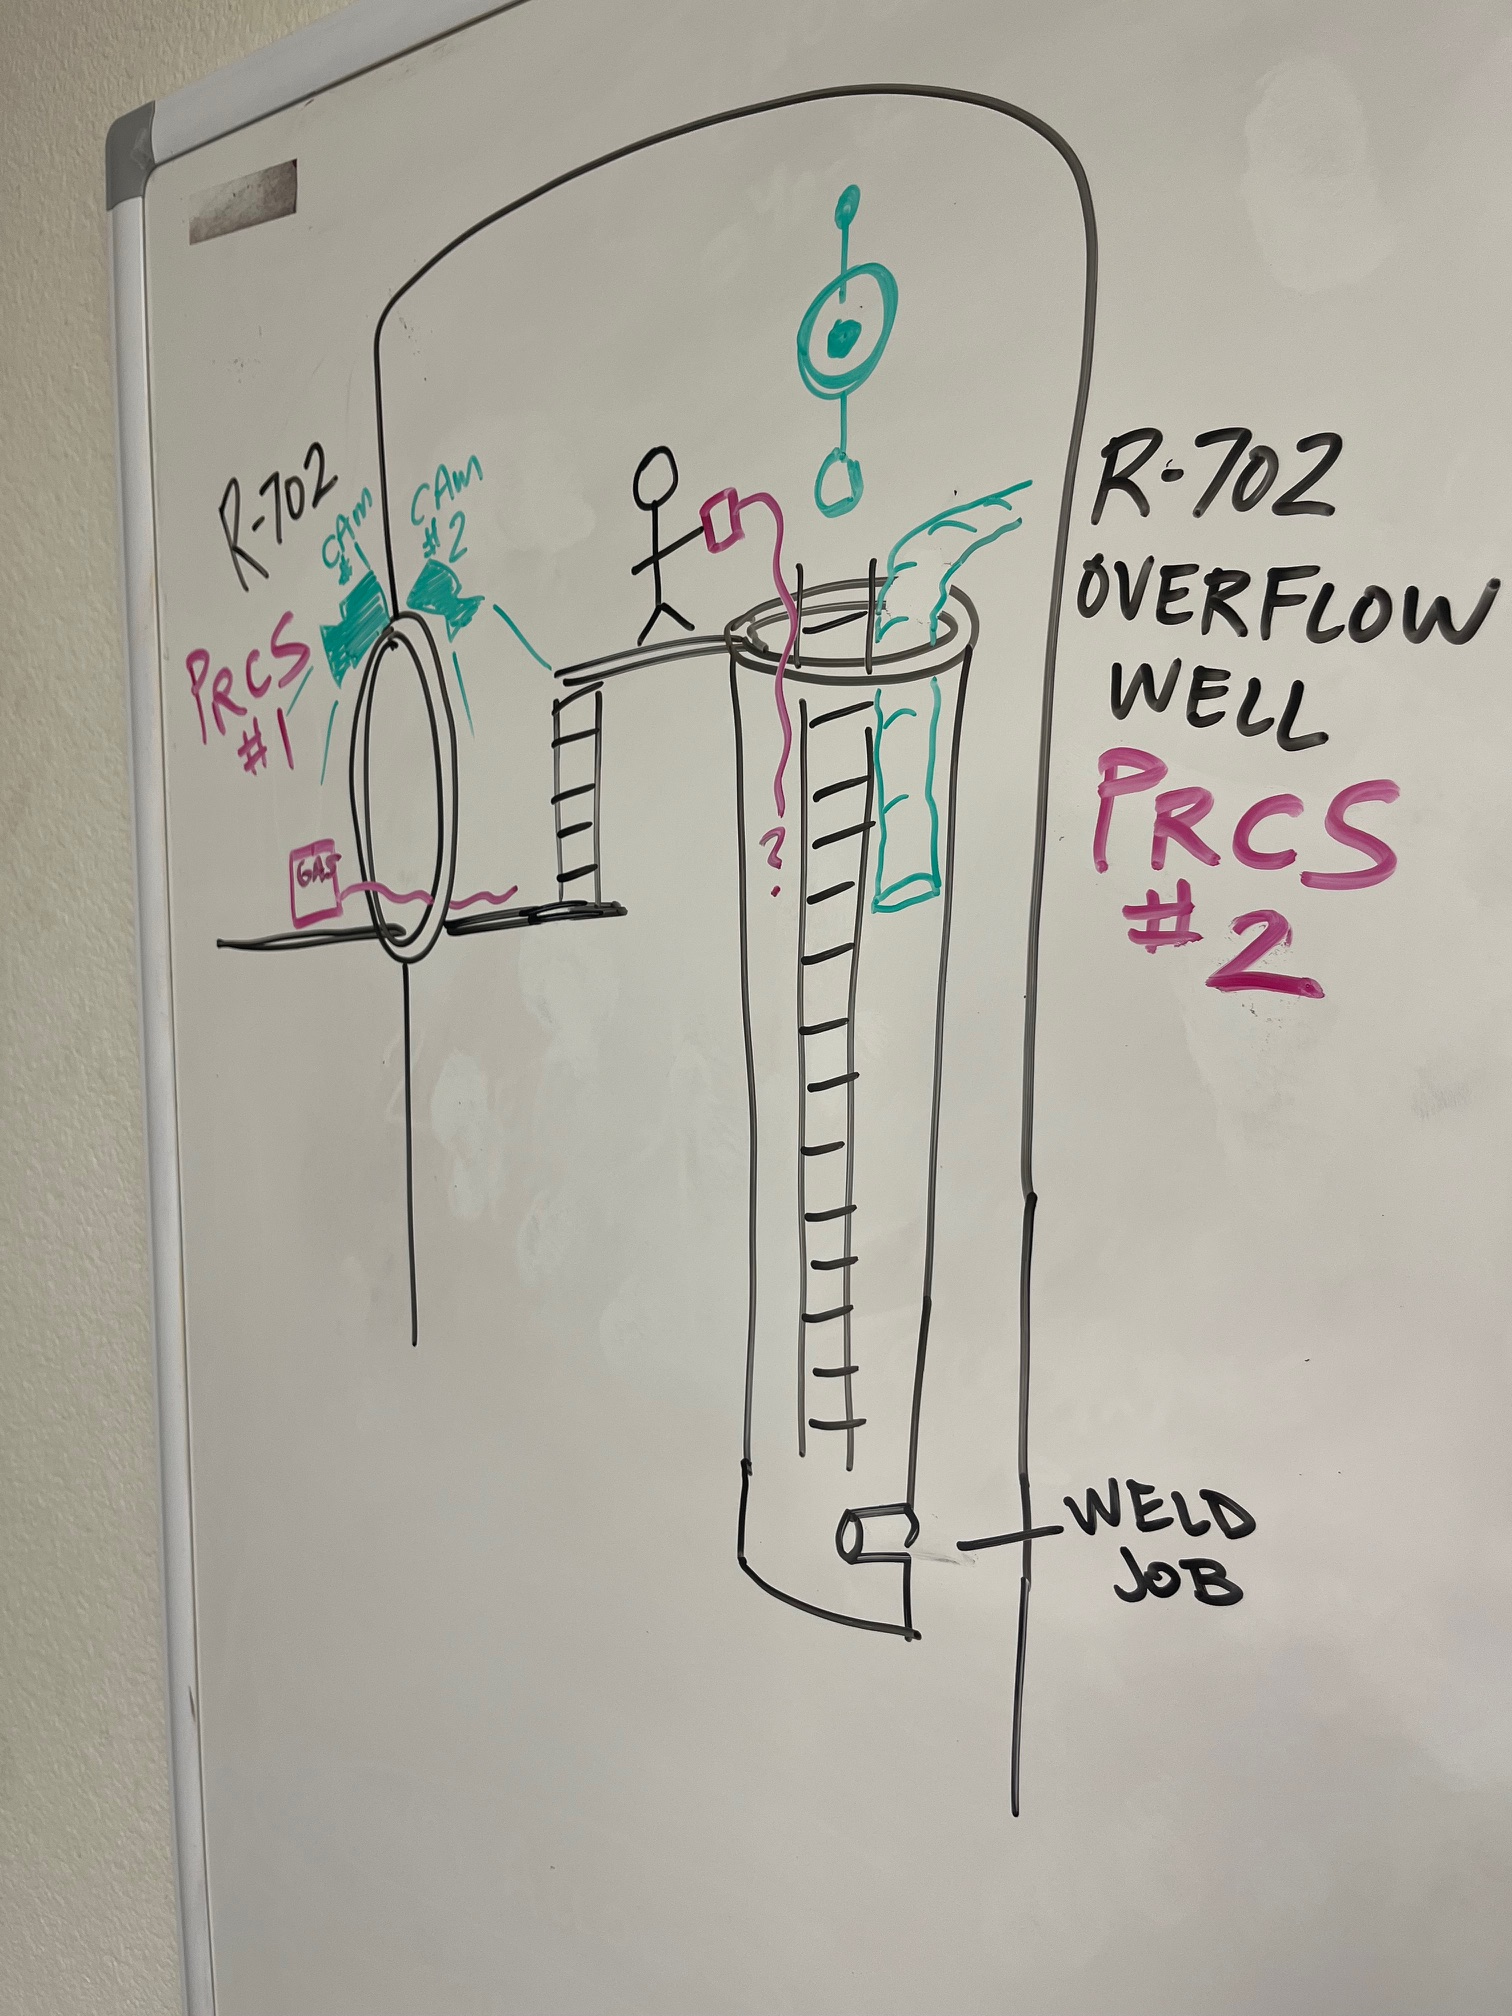 R-702
CAM
#1
CAM
#2
PRCS
#1
GAS
?
R-702
OVERFLOW
WELL
PRCS
#2
WELD
JOB